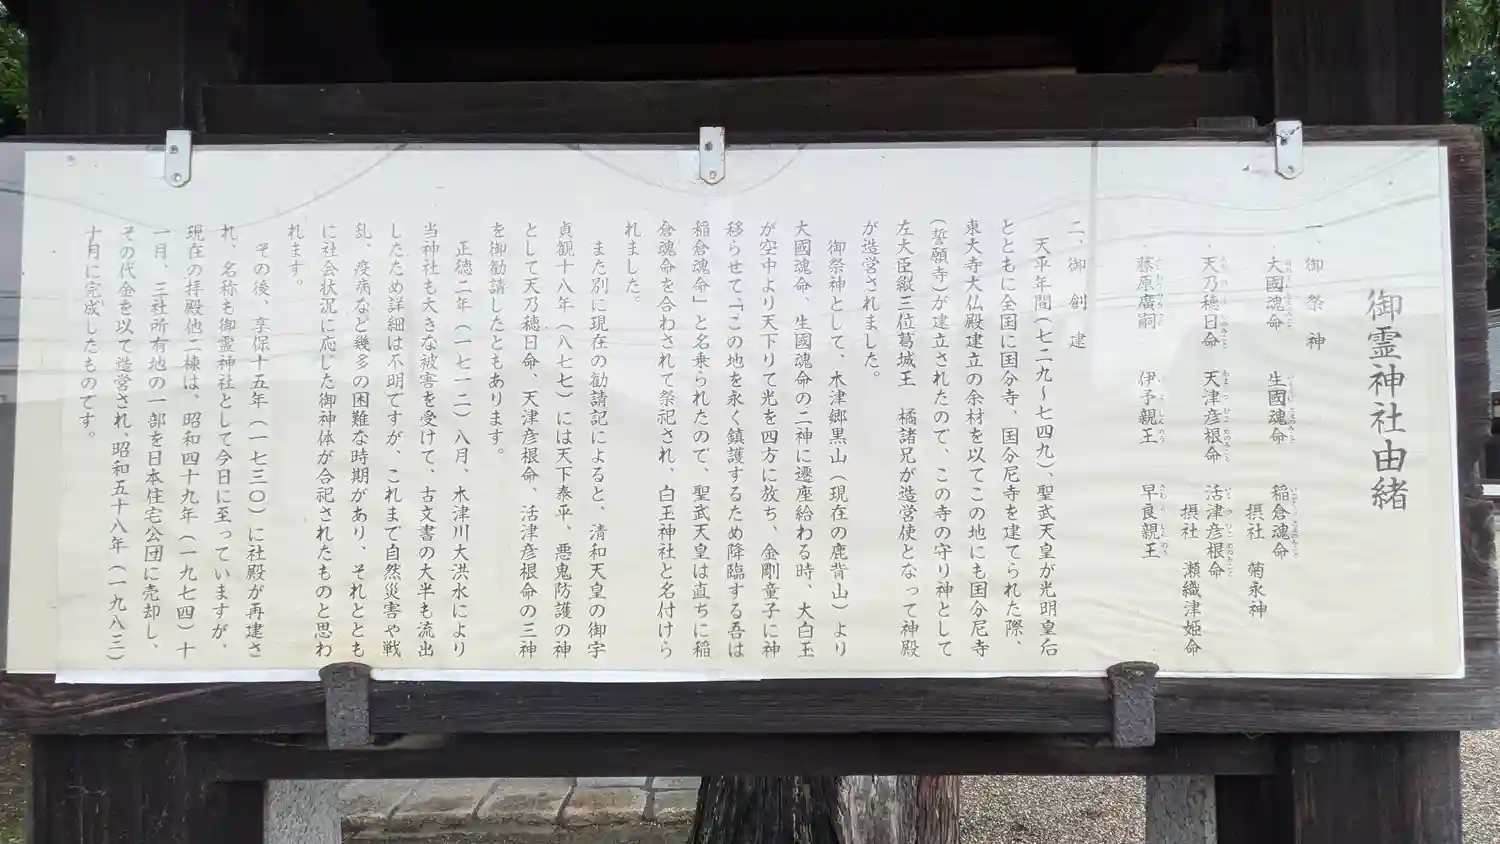 御霊神社由緒
一、御祭神
大國魂命 生國魂命 稲倉魂命
摂社 菊永神
天乃穂日命 天津彦根命 活津彦根命
摂社 瀬織津姫命
藤原廣嗣 伊予親王 早良親王
二、御創建
天平年間(七二九〜七四九)、聖武天皇が光明皇后
とともに全国に国分寺、国分尼寺を建てられた際、
東大寺大仏殿建立の余材を以てこの地にも国分尼寺
(誓願寺)が建立されたので、この寺の守り神として
左大臣縦三位葛城王 橘諸兄が造営使となって神殿
が造営されました。
御祭神として、木津郷黒山(現在の鹿背山)より
大國魂命、生國魂命の二神に遷座給わる時、大白玉
が空中より天下りて光を四方に放ち、金剛童子に神
移らせて、「この地を永く鎮護するため降臨する吾は
稲倉魂命」と名乗られたので、聖武天皇は直ちに稲
倉魂命を合わされて祭祀され、白玉神社と名付けら
れました。
また別に現在の勧請記によると、清和天皇の御宇
貞観十八年(八七七)には天下泰平、悪鬼防護の神
として天乃穂日命、天津彦根命、活津彦根命の三神
を御勧請したともあります。
正徳二年(一七一二)八月、木津川大洪水により
当神社も大きな被害を受けて、古文書の大半も流出
したため詳細は不明ですが、これまで自然災害や戦
乱、疫病など幾多の困難な時期があり、それととも
に社会状況に応じた御神体が合祀されたものと思わ
れます。
その後、享保十五年(一七三〇)に社殿が再建さ
れ、名称も御霊神社として今日に至っていますが、
現在の拝殿他二棟は、昭和四十九年(一九七四)十
一月、三社所有地の一部を日本住宅公団に売却し、
その代金を以て造営され、昭和五十八年(一九八三)
十月に完成したものです。